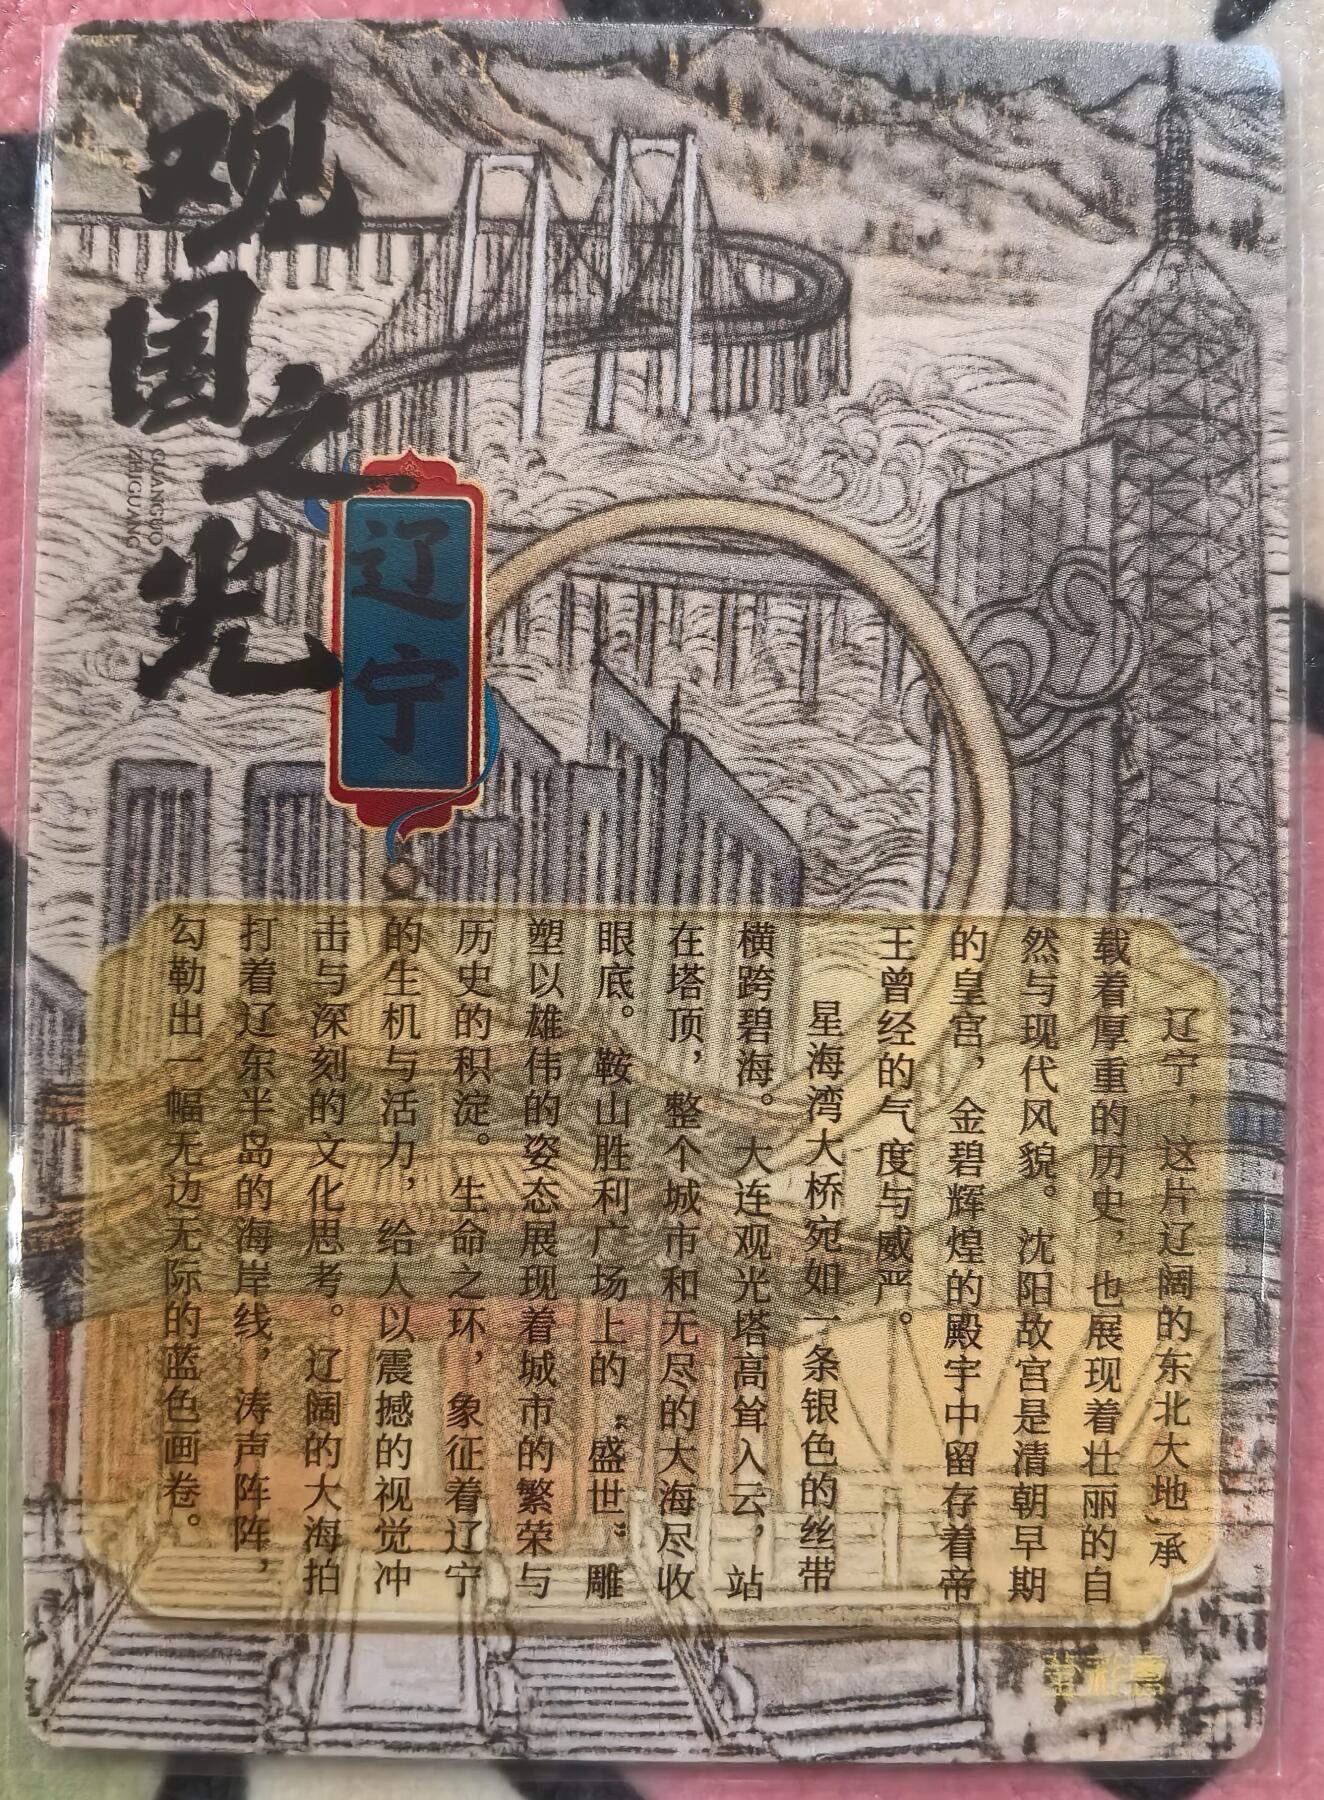 观国之光
GUANGUO
ZHIGUANG
辽宁
辽宁，这片辽阔的东北大地，承
载着厚重的历史，也展现着壮丽的自
然与现代风貌。沈阳故宫是清朝早期
的皇宫，金碧辉煌的殿宇中留存着帝
王曾经的气度与威严。
星海湾大桥宛如一条银色的丝带
横跨碧海。大连观光塔高耸入云，站
在塔顶，整个城市和无尽的大海尽收
眼底。鞍山胜利广场上的“盛世”雕
塑以雄伟的姿态展现着城市的繁荣与
历史的积淀。生命之环，象征着辽宁
的生机与活力，给人以震撼的视觉冲
击与深刻的文化思考。辽阔的大海拍
打着辽东半岛的海岸线，涛声阵阵，
勾勒出一幅无边无际的蓝色画卷。